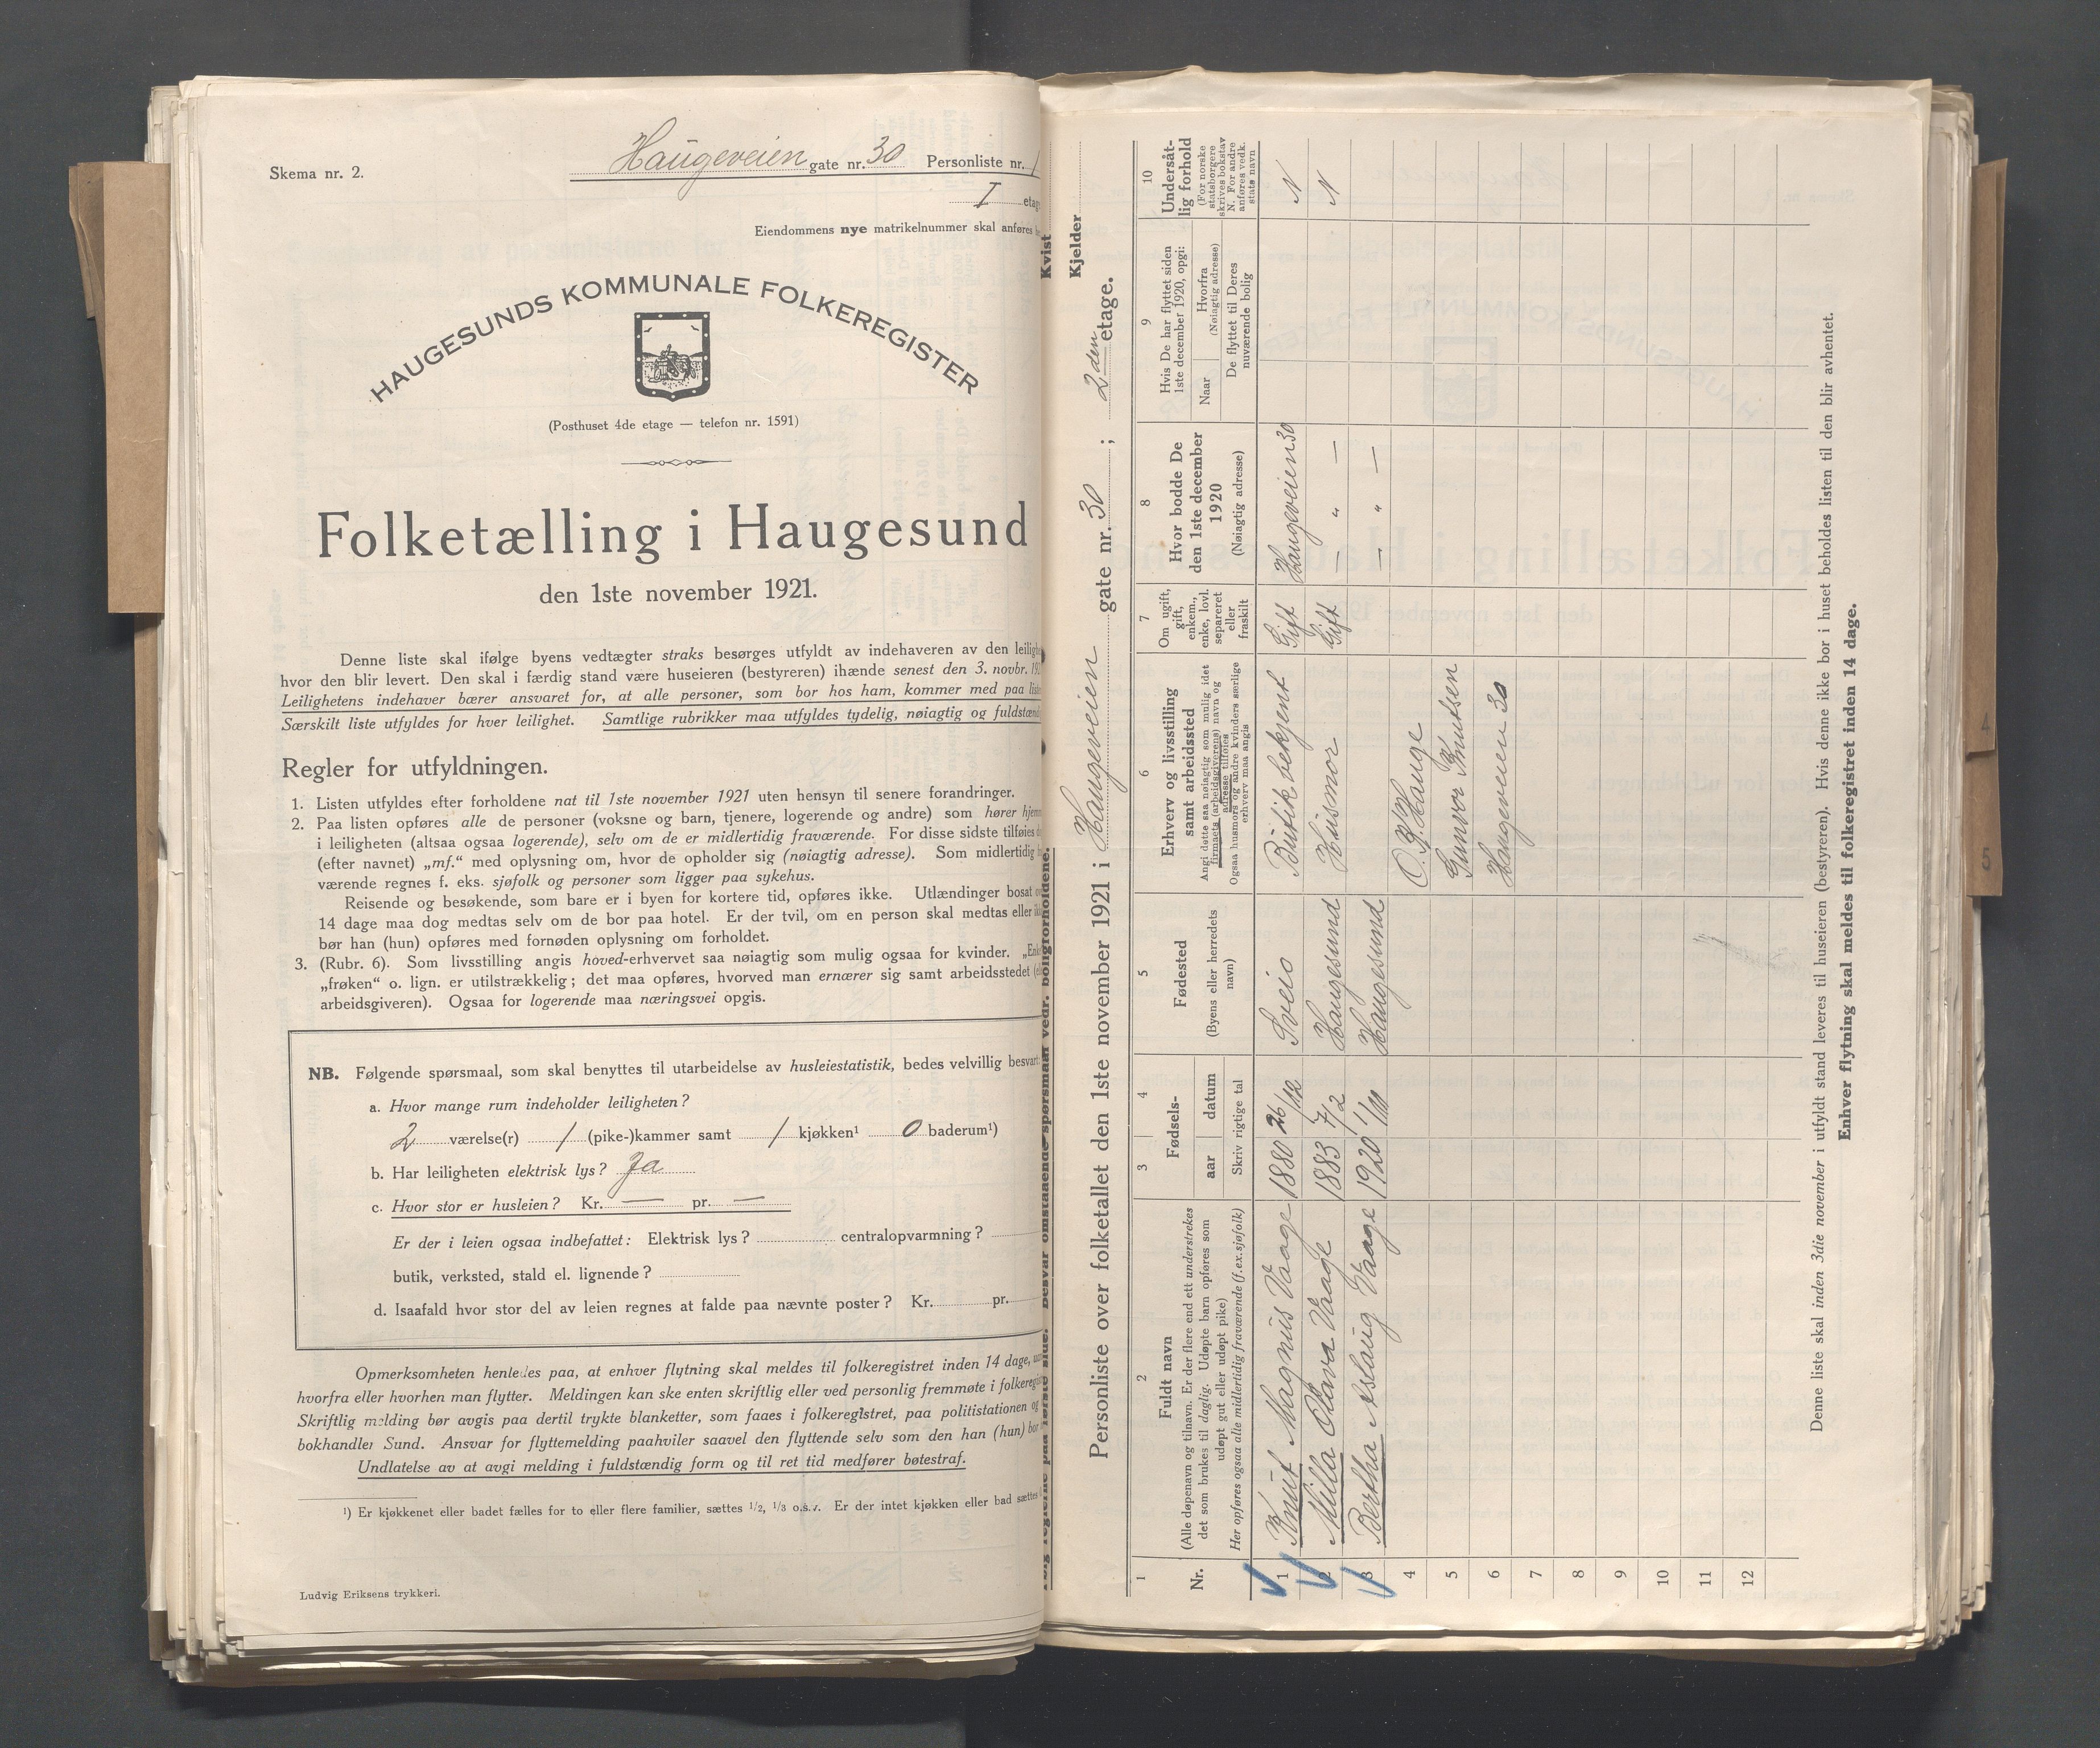 Skema nr. 2.
Haugeveien gate nr. 30 Personliste nr. 1
I etag
Eiendommens nye matrikelnummer skal anføres
HAUGESUNDS KOMMUNALE FOLKEREGISTER
(Posthuset 4de etage — telefon nr. 1591)
Folketælling i Haugesund
den 1ste november 1921.
Denne liste skal ifølge byens vedtægter straks besørges utfyldt av indehaveren av den leiligh
hvor den blir levert. Den skal i færdig stand være huseieren (bestyreren) ihænde senest den 3. novbr. 192
Leilighetens indehaver bærer ansvaret for, at alle personer, som bor hos ham, kommer med paa liste
Særskilt liste utfyldes for hver leilighet. Samtlige rubrikker maa utfyldes tydelig, nøiagtig og fuldstænd
Regler for utfyldningen.
1. Listen utfyldes efter forholdene nat til 1ste november 1921 uten hensyn til senere forandringer.
2. Paa listen opføres alle de personer (voksne og barn, tjenere, logerende og andre) som hører hjem
i leiligheten (altsaa ogsaa logerende), selv om de er midlertidig fraværende. For disse sidste tilføies
(efter navnet) „mf.“ med oplysning om, hvor de opholder sig (nøiagtig adresse). Som midlertidig
værende regnes f. eks. sjøfolk og personer som ligger paa sykehus.
Reisende og besøkende, som bare er i byen for kortere tid, opføres ikke. Utlændinger bosat
14 dage maa dog medtas selv om de bor paa hotel. Er der tvil, om en person skal medtas eller
bør han (hun) opføres med fornøden oplysning om forholdet.
3. (Rubr. 6). Som livsstilling angis hoved-erhvervet saa nøiagtig som mulig ogsaa for kvinder. „Enk
„frøken“ o. lign. er utilstrækkelig; det maa opføres, hvorved man ernærer sig samt arbeidsstedet
arbeidsgiveren). Ogsaa for logerende maa næringsvei opgis.
NB. Følgende spørsmaal, som skal benyttes til utarbeidelse av husleiestatistik, bedes velvillig besvart:
a. Hvor mange rum indeholder leiligheten?
2 værelse(r) 1 (pike-)kammer samt 1 kjøkken¹ 0 baderum¹)
b. Har leiligheten elektrisk lys? Ja
c. Hvor stor er husleien? Kr. — pr. —
Er der i leien ogsaa indbefattet: Elektrisk lys? centralopvarmning?
butik, verksted, stald el. lignende?
d. Isaafald hvor stor del av leien regnes at falde paa nævnte poster? Kr. pr.
Opmerksomheten henledes paa, at enhver flytning skal meldes til folkeregistret inden 14 dage,
hvorfra eller hvorhen man flytter. Meldingen kan ske enten skriftlig eller ved personlig fremmøte i folkeregi
Skriftlig melding bør avgis paa dertil trykte blanketter, som faaes i folkeregistret, paa politistationen og
bokhandler Sund. Ansvar for flyttemelding paahviler saavel den flyttende selv som den han (hun) bor
Undlatelse av at avgi melding i fuldstændig form og til ret tid medfører bøtestraf.
¹) Er kjøkkenet eller badet fælles for to eller flere familier, sættes 1/2, 1/3 o.s.v. Er der intet kjøkken eller bad sættes
Ludvig Eriksens trykkeri.
Besvar omstaaende spørsmaal vedr. boligforholdene.
Kvist
Kjelder
Personliste over folketallet den 1ste november 1921 i Haugeveien gate nr. 30 ; 2den etage.
1 2 3 4 5 6 7 8 9 10
Nr.
Fuldt navn
(Alle døpenavn og tilnavn. Er der flere end ett understrekes
det som brukes til daglig. Udøpte barn opføres som
udøpt gut eller udøpt pike)
Her opføres ogsaa alle midlertidig fraværende (f.ex.sjøfolk)
Fødsels-
aar datum
Skriv rigtige tal
Fødested
(Byens eller herredets
navn)
Erhverv og livsstilling
samt arbeidssted
Angi dette saa nøiagtig som mulig idet
firmaets (arbeidsgiverens) navn og
adresse tilføies
Ogsaa husmors og andre kvinders særlige
erhverv maa angis
Om ugift,
gift,
enkem.,
enke, lovl.
separeret
eller
fraskilt
Hvor bodde De
den 1ste december
1920
(Nøiagtig adresse)
Hvis De har flyttet siden
1ste december 1920, opgi:
Naar
Hvorfra
(Nøiagtig adresse)
De flyttet til Deres
nuværende bolig
Undersåt-
lig forhold
(For norske
statsborgere
skrives bokstav
N. For andre
anføres vedk.
stats navn
1 Knut Magnus Vaage 1880 26/12 Sveio Butikbekjent Gift Haugeveien 30 N
2 Milla Olava Vaage 1883 7/2 Haugesund Husmor Gift — „ — N
3 Bertha Aslaug Vaage 1920 1/10 Haugesund — „ —
4 O. J. Hauge
5 Gunvor Knutsen
6 Haugeveien 30
7
8
9
10
11
12
Denne liste skal inden 3die november i utfyldt stand leveres til huseieren (bestyreren). Hvis denne ikke bor i huset beholdes listen til den blir avhentet.
Enhver flytning skal meldes til folkeregistret inden 14 dage.